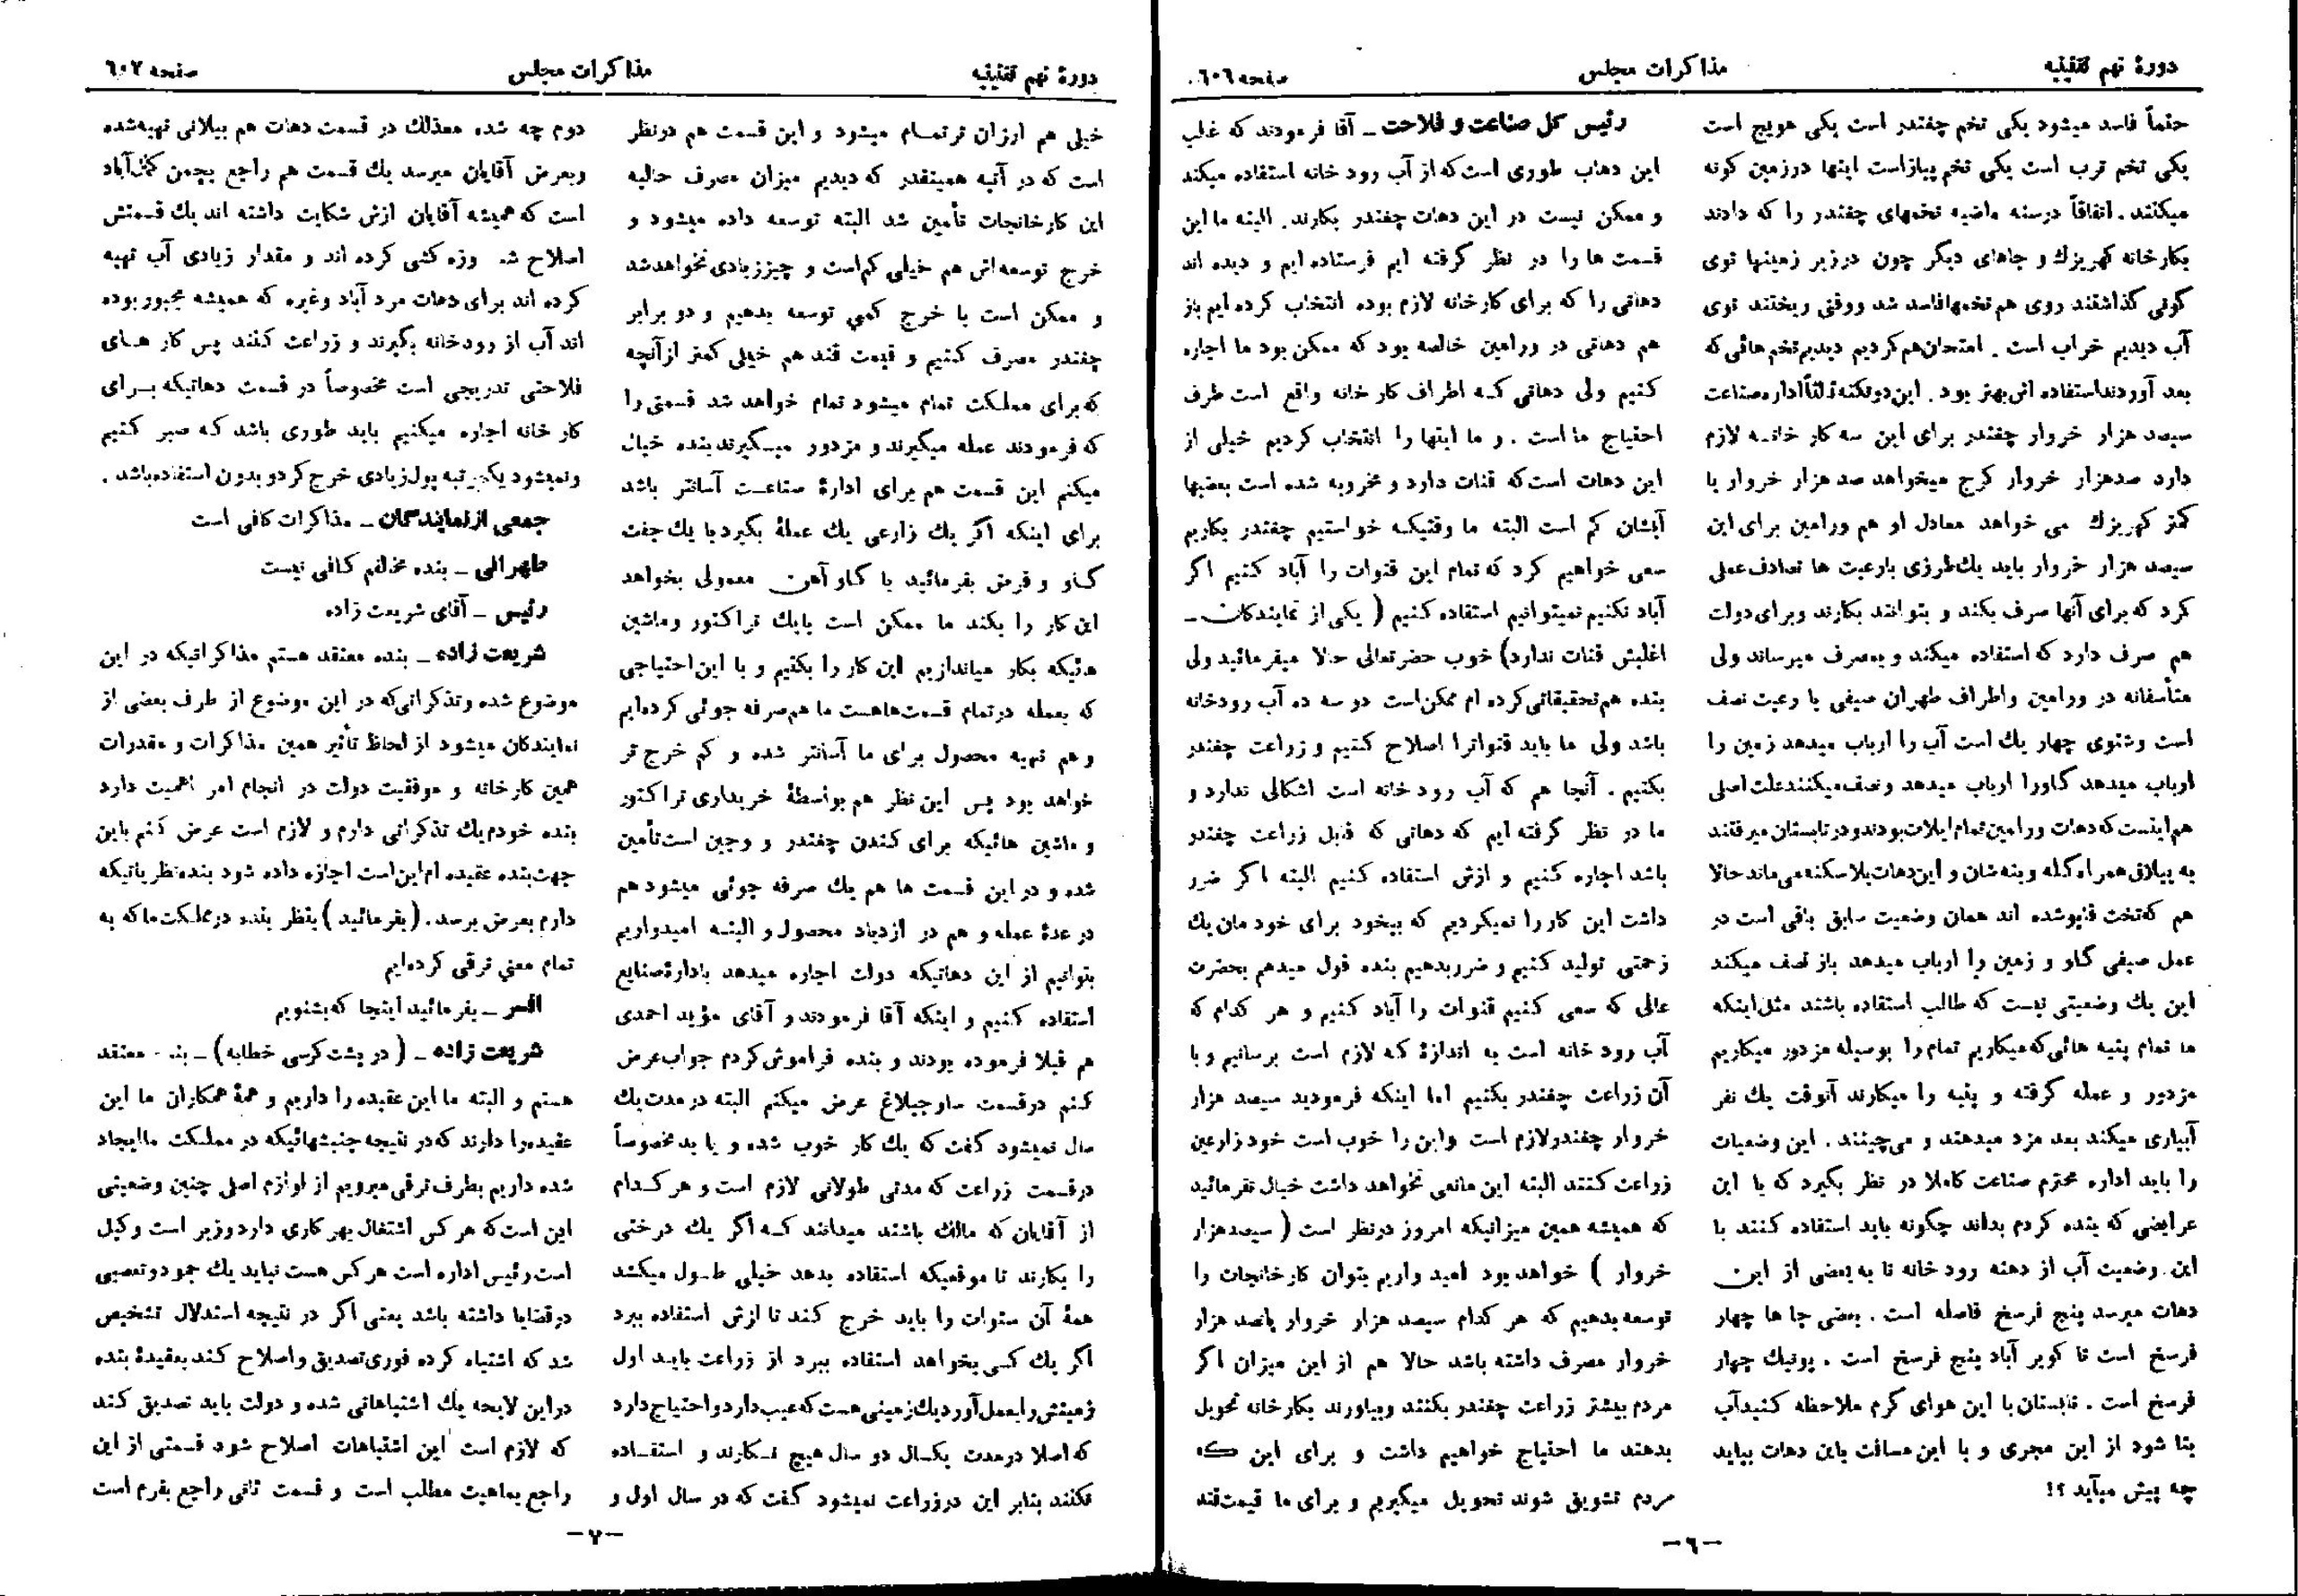 دورهٔ نهم تقنینیه
مذاکرات مجلس
صفحه ٦٠٦
حتماً فاسد میشود یکی تخم چغندر است یکی هویج است
یکی تخم ترب است یکی تخم پیاز است اینها در زمین گونه
میکنند. اتفاقاً در سنه ماضیه تخمهای چغندر را که دادند
بکارخانه کهریزك و جاهای دیگر چون در زیر زمینها توی
گونی گذاشتند روی هم تخمها فاسد شد و وقتی ریختند توی
آب دیدیم خراب است. امتحان هم کردیم دیدیم تخم هائی که
بعد آوردند استفاده اش بهتر بود. این دو نکته ثالثاً اداره صناعت
سیصد هزار خروار چغندر برای این سه کار خانه لازم
دارد صد هزار خروار کرج میخواهد صد هزار خروار یا
کمتر کهریزك می خواهد معادل او هم ورامین برای این
سیصد هزار خروار باید یك طرزی با رعیت ها تصادف عملی
کرد که برای آنها صرف بکند و بتوانند بکارند و برای دولت
هم صرف دارد که استفاده میکند و بمصرف میرساند ولی
متأسفانه در ورامین و اطراف طهران صیفی با رعیت نصف
است و شتوی چهار یك است آب را ارباب میدهد زمین را
ارباب میدهد گاو را ارباب میدهد و نصف میکنند علت اصلی
هم اینست که دهات ورامین تمام ایلات بودند و در تابستان میرفتند
به ییلاق همراه گله و بنه شان و این دهات بلا سکنه می ماند حالا
هم که تخت قاپو شده اند همان وضعیت سابق باقی است در
عمل صیفی گاو و زمین را ارباب میدهد باز نصف میکند
این یك وضعیتی نیست که طالب استفاده باشند مثل اینکه
ما تمام پنبه هائی که میکاریم تمام را بوسیله مزدور میکاریم
مزدور و عمله گرفته و پنبه را میکارند آنوقت یك نفر
آبیاری میکند بعد مزد میدهند و می چینند. این وضعیات
را باید اداره محترم صناعت کاملا در نظر بگیرد که با این
عرایضی که بنده کردم بداند چگونه باید استفاده کنند با
این وضعیت آب از دهنه رود خانه تا به بعضی از این
دهات میرسد پنج فرسخ فاصله است. بعضی جا ها چهار
فرسخ است تا کویر آباد پنج فرسخ است. پوئینك چهار
فرسخ است. تابستان با این هوای گرم ملاحظه کنید آب
بنا شود از این مجری و با این مسافت باین دهات بیاید
چه پیش میآید ؟!
رئیس کل صناعت و فلاحت ـ آقا فرمودند که غلب
این دهات طوری است که از آب رود خانه استفاده میکند
و ممکن نیست در این دهات چغندر بکارند. البته ما این
قسمت ها را در نظر گرفته ایم فرستاده ایم و دیده اند
دهاتی را که برای کارخانه لازم بوده انتخاب کرده ایم باز
هم دهاتی در ورامین خالصه بود که ممکن بود ما اجاره
کنیم ولی دهاتی که اطراف کار خانه واقع است طرف
احتیاج ما است. و ما اینها را انتخاب کردیم خیلی از
این دهات است که قنات دارد و مخروبه شده است بعضیها
آبشان کم است البته ما وقتیکه خواستیم چغندر بکاریم
سعی خواهیم کرد که تمام این قنوات را آباد کنیم اگر
آباد نکنیم نمیتوانیم استفاده کنیم (یکی از نمایندگان ـ
اغلبش قنات ندارد) خوب حضرتعالی حالا میفرمائید ولی
بنده هم تحقیقاتی کرده ام ممکن است دو سه ده آب رودخانه
باشد ولی ما باید قنواترا اصلاح کنیم و زراعت چغندر
بکنیم. آنجا هم که آب رود خانه است اشکالی ندارد و
ما در نظر گرفته ایم که دهاتی که قابل زراعت چغندر
باشد اجاره کنیم و ازش استفاده کنیم البته اگر ضرر
داشت این کار را نمیکردیم که بیخود برای خود مان یك
زحمتی تولید کنیم و ضرر بدهیم بنده قول میدهم بحضرت
عالی که سعی کنیم قنوات را آباد کنیم و هر کدام که
آب رود خانه است به اندازهٔ که لازم است برسانیم و با
آن زراعت چغندر بکنیم اما اینکه فرمودید سیصد هزار
خروار چغندر لازم است و این را خوب است خود زارعین
زراعت کنند البته این مانعی نخواهد داشت خیال نفرمائید
که همیشه همین میزانیکه امروز در نظر است (سیصد هزار
خروار) خواهد بود امید واریم بتوان کارخانجات را
توسعه بدهیم که هر کدام سیصد هزار خروار پانصد هزار
خروار مصرف داشته باشد حالا هم از این میزان اگر
مردم بیشتر زراعت چغندر بکنند و بیاورند بکارخانه تحویل
بدهند ما احتیاج خواهیم داشت و برای این که
مردم تشویق شوند تحویل میگیریم و برای ما قیمت قند
ـ ٦ ـ
دورهٔ نهم تقنینیه
مذاکرات مجلس
صفحه ٦٠٧
خیلی هم ارزان تر تمام میشود و این قسمت هم در نظر
است که در آتیه همینقدر که دیدیم میزان مصرف حالیه
این کارخانجات تأمین شد البته توسعه داده میشود و
خرج توسعه اش هم خیلی کم است و چیز زیادی نخواهد شد
و ممکن است با خرج کمی توسعه بدهیم و دو برابر
چغندر مصرف کنیم و قیمت قند هم خیلی کمتر از آنچه
که برای مملکت تمام میشود تمام خواهد شد قسمتی را
که فرمودند عمله میگیرند و مزدور میگیرند بنده خیال
میکنم این قسمت هم برای ادارهٔ صناعت آسانتر باشد
برای اینکه اگر یك زارعی یك عملهٔ بگیرد با یك جفت
گاو و فرض بفرمائید با گاو آهن معمولی بخواهد
این کار را بکند ما ممکن است با یك تراکتور و ماشین
هائیکه بکار میاندازیم این کار را بکنیم و با این احتیاجی
که بعمله در تمام قسمت ها هست ما هم صرفه جوئی کرده ایم
و هم تهیه محصول برای ما آسانتر شده و کم خرج تر
خواهد بود پس این نظر هم بواسطهٔ خریداری تراکتور
و ماشین هائیکه برای کندن چغندر و وجین است تأمین
شده و در این قسمت ها هم یك صرفه جوئی میشود هم
در عدهٔ عمله و هم در ازدیاد محصول و البته امیدواریم
بتوانیم از این دهاتیکه دولت اجاره میدهد بادارهٔ صنایع
استفاده کنیم و اینکه آقا فرمودند و آقای مؤید احمدی
هم قبلا فرموده بودند و بنده فراموش کردم جواب عرض
کنم در قسمت ساوجبلاغ عرض میکنم البته در مدت یك
سال نمیشود گفت که یك کار خوب شده و یا بد مخصوصاً
در قسمت زراعت که مدتی طولانی لازم است و هر کدام
از آقایان که مالك باشند میدانند که اگر یك درختی
را بکارند تا موقعیکه استفاده بدهد خیلی طول میکشد
همهٔ آن سنوات را باید خرج کند تا ازش استفاده ببرد
اگر یك کسی بخواهد استفاده ببرد از زراعت باید اول
زمینش را بعمل آورد یك زمینی هست که عیب دارد و احتیاج دارد
که اصلا در مدت یکسال دو سال هیچ نکارند و استفاده
نکنند بنابر این در زراعت نمیشود گفت که در سال اول و
دوم چه شده معذلك در قسمت دهات هم بیلانی تهیه شده
و بعرض آقایان میرسد یك قسمت هم راجع بچمن کمال آباد
است که همیشه آقایان ازش شکایت داشته اند یك قسمتش
اصلاح شده وزه کشی کرده اند و مقدار زیادی آب تهیه
کرده اند برای دهات مرد آباد و غیره که همیشه مجبور بوده
اند آب از رودخانه بگیرند و زراعت کنند پس کار های
فلاحتی تدریجی است مخصوصاً در قسمت دهاتیکه برای
کار خانه اجاره میکنیم باید طوری باشد که صبر کنیم
و نمیشود یکمرتبه پول زیادی خرج کرد و بدون استفاده باشد.
جمعی از نمایندگان ـ مذاکرات کافی است
طهرانی ـ بنده مخالفم کافی نیست
رئیس ـ آقای شریعت زاده
شریعت زاده ـ بنده معتقد هستم مذاکراتیکه در این
موضوع شده و تذکراتی که در این موضوع از طرف بعضی از
نمایندگان میشود از لحاظ تأثیر همین مذاکرات و مقدرات
همین کارخانه و موفقیت دولت در انجام امر اهمیت دارد
بنده خودم یك تذکراتی دارم و لازم است عرض کنم باین
جهت بنده عقیده ام این است اجازه داده شود بنده نظریاتیکه
دارم بعرض برسد. (بفرمائید) بنظر بنده در مملکت ما که به
تمام معنی ترقی کرده ایم
افسر ـ بفرمائید اینجا که بشنویم
شریعت زاده ـ (در پشت کرسی خطابه) ـ بنده معتقد
هستم و البته ما این عقیده را داریم و همهٔ همکاران ما این
عقیده را دارند که در نتیجه جنبشهائیکه در مملکت ما ایجاد
شده داریم بطرف ترقی میرویم از لوازم اصلی چنین وضعیتی
این است که هر کس اشتغال بهر کاری دارد وزیر است وکیل
است رئیس اداره است هر کس هست نباید یك جمود و تعصبی
در قضایا داشته باشد یعنی اگر در نتیجه استدلال تشخیص
شد که اشتباه کرده فوری تصدیق و اصلاح کند بعقیدهٔ بنده
در این لایحه یك اشتباهاتی شده و دولت باید تصدیق کند
که لازم است این اشتباهات اصلاح شود قسمتی از این
راجع بماهیت مطلب است و قسمت ثانی راجع بفرم است
ـ ٧ ـ